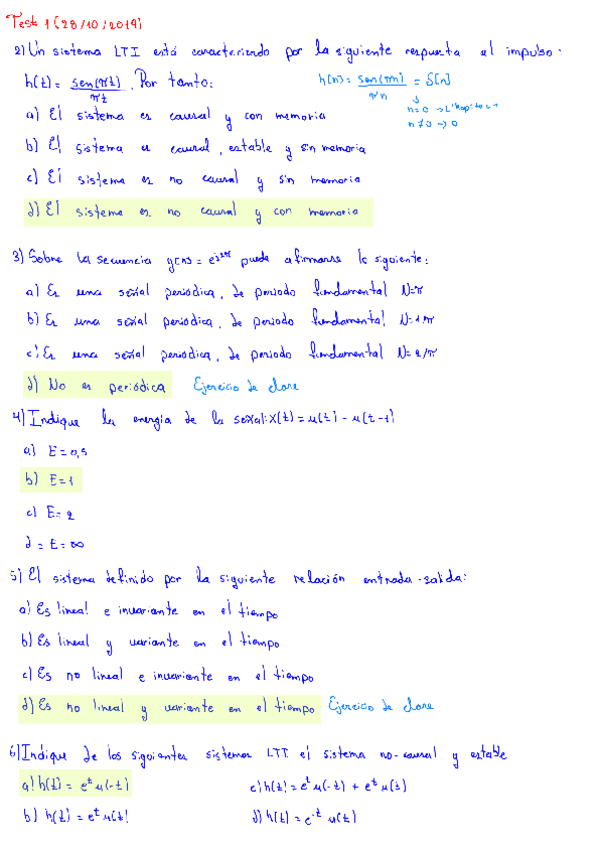 Test 1 (28/10/2019)
2) Un sistema LTI está caracterizado por la siguiente respuesta al impulso:
h(t) = sen(πt)/πt. Por tanto: h(n) = sen(πn)/πn = δ[n]
n=0 → L'Hopital = 1
n≠0 → 0
a) El sistema es causal y con memoria
b) El sistema es causal, estable y sin memoria
c) El sistema es no causal y sin memoria
d) El sistema es no causal y con memoria
3) Sobre la secuencia y(n) = puede afirmarse lo siguiente:
a) Es una señal periódica, de periodo fundamental N=π
b) Es una señal periódica, de periodo fundamental
c) Es una señal periódica, de periodo fundamental N=2/π
d) No es periódica Ejercicio de clase
4) Indique la energia de la señal: x(t) = u(t) - u(t-1)
a) E=0,5
b) E=1
c) E=2
d = E=∞
5) El sistema definido por la siguiente relación entrada-salida:
a) Es lineal e invariante en el tiempo
b) Es lineal y variante en el tiempo
c) Es no lineal e invariante en el tiempo
d) Es no lineal y variante en el tiempo Ejercicio de clase
6) Indique de los siguientes sistemas LTI el sistema no-causal y estable
a) h(t) = e^t u(-t) c) h(t) = e^t u(-t) + e^t u(t)
b) h(t) = e^t u(t) d) h(t) = e^-t u(t)